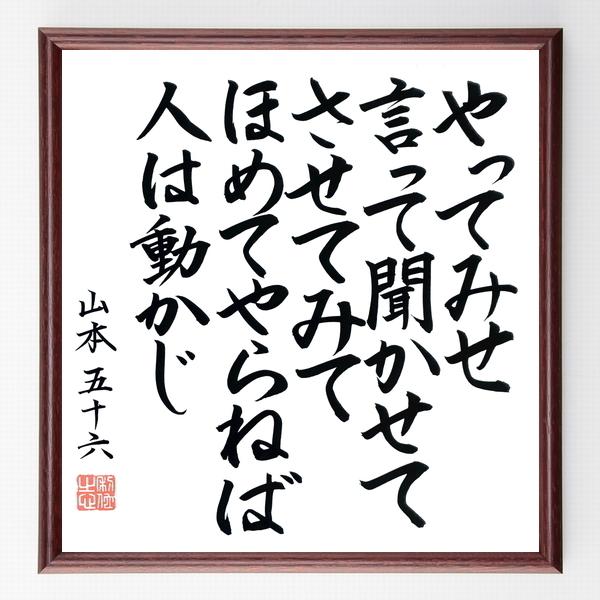 やってみせ
言って聞かせて
させてみて
ほめてやらねば
人は動かじ
山本五十六